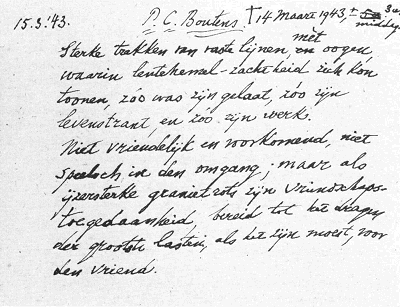 15.3.'43. P. C. Boutens † 14 Maart 1943, ± 3 u.
middag
mèt
Sterke trekken van vaste lijnen, en oogen,
waarin lentehemel-zachtheid zich kon
toonen, zóo was zijn gelaat, zóo zijn
levenstrant, en zóo zijn werk.
Niet vriendelijk en voorkomend, niet
speelsch in den omgang; maar als
ijzersterke granietrots zijn vriendschaps-
toegedaanheid, bereid tot het dragen
der grootste lasten, als het zijn moest, voor
den vriend.